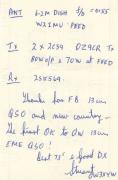 ANT 6.2M DISH F/D
W2IMU FEED
TX 2 x 2C39
80W o/p = 70W at FEED
RX
Thanks for FB 13cm
QSO and new country -
the first OK to GW 13cm
EME QSO!
Best 73's & good DX
GW3XYW